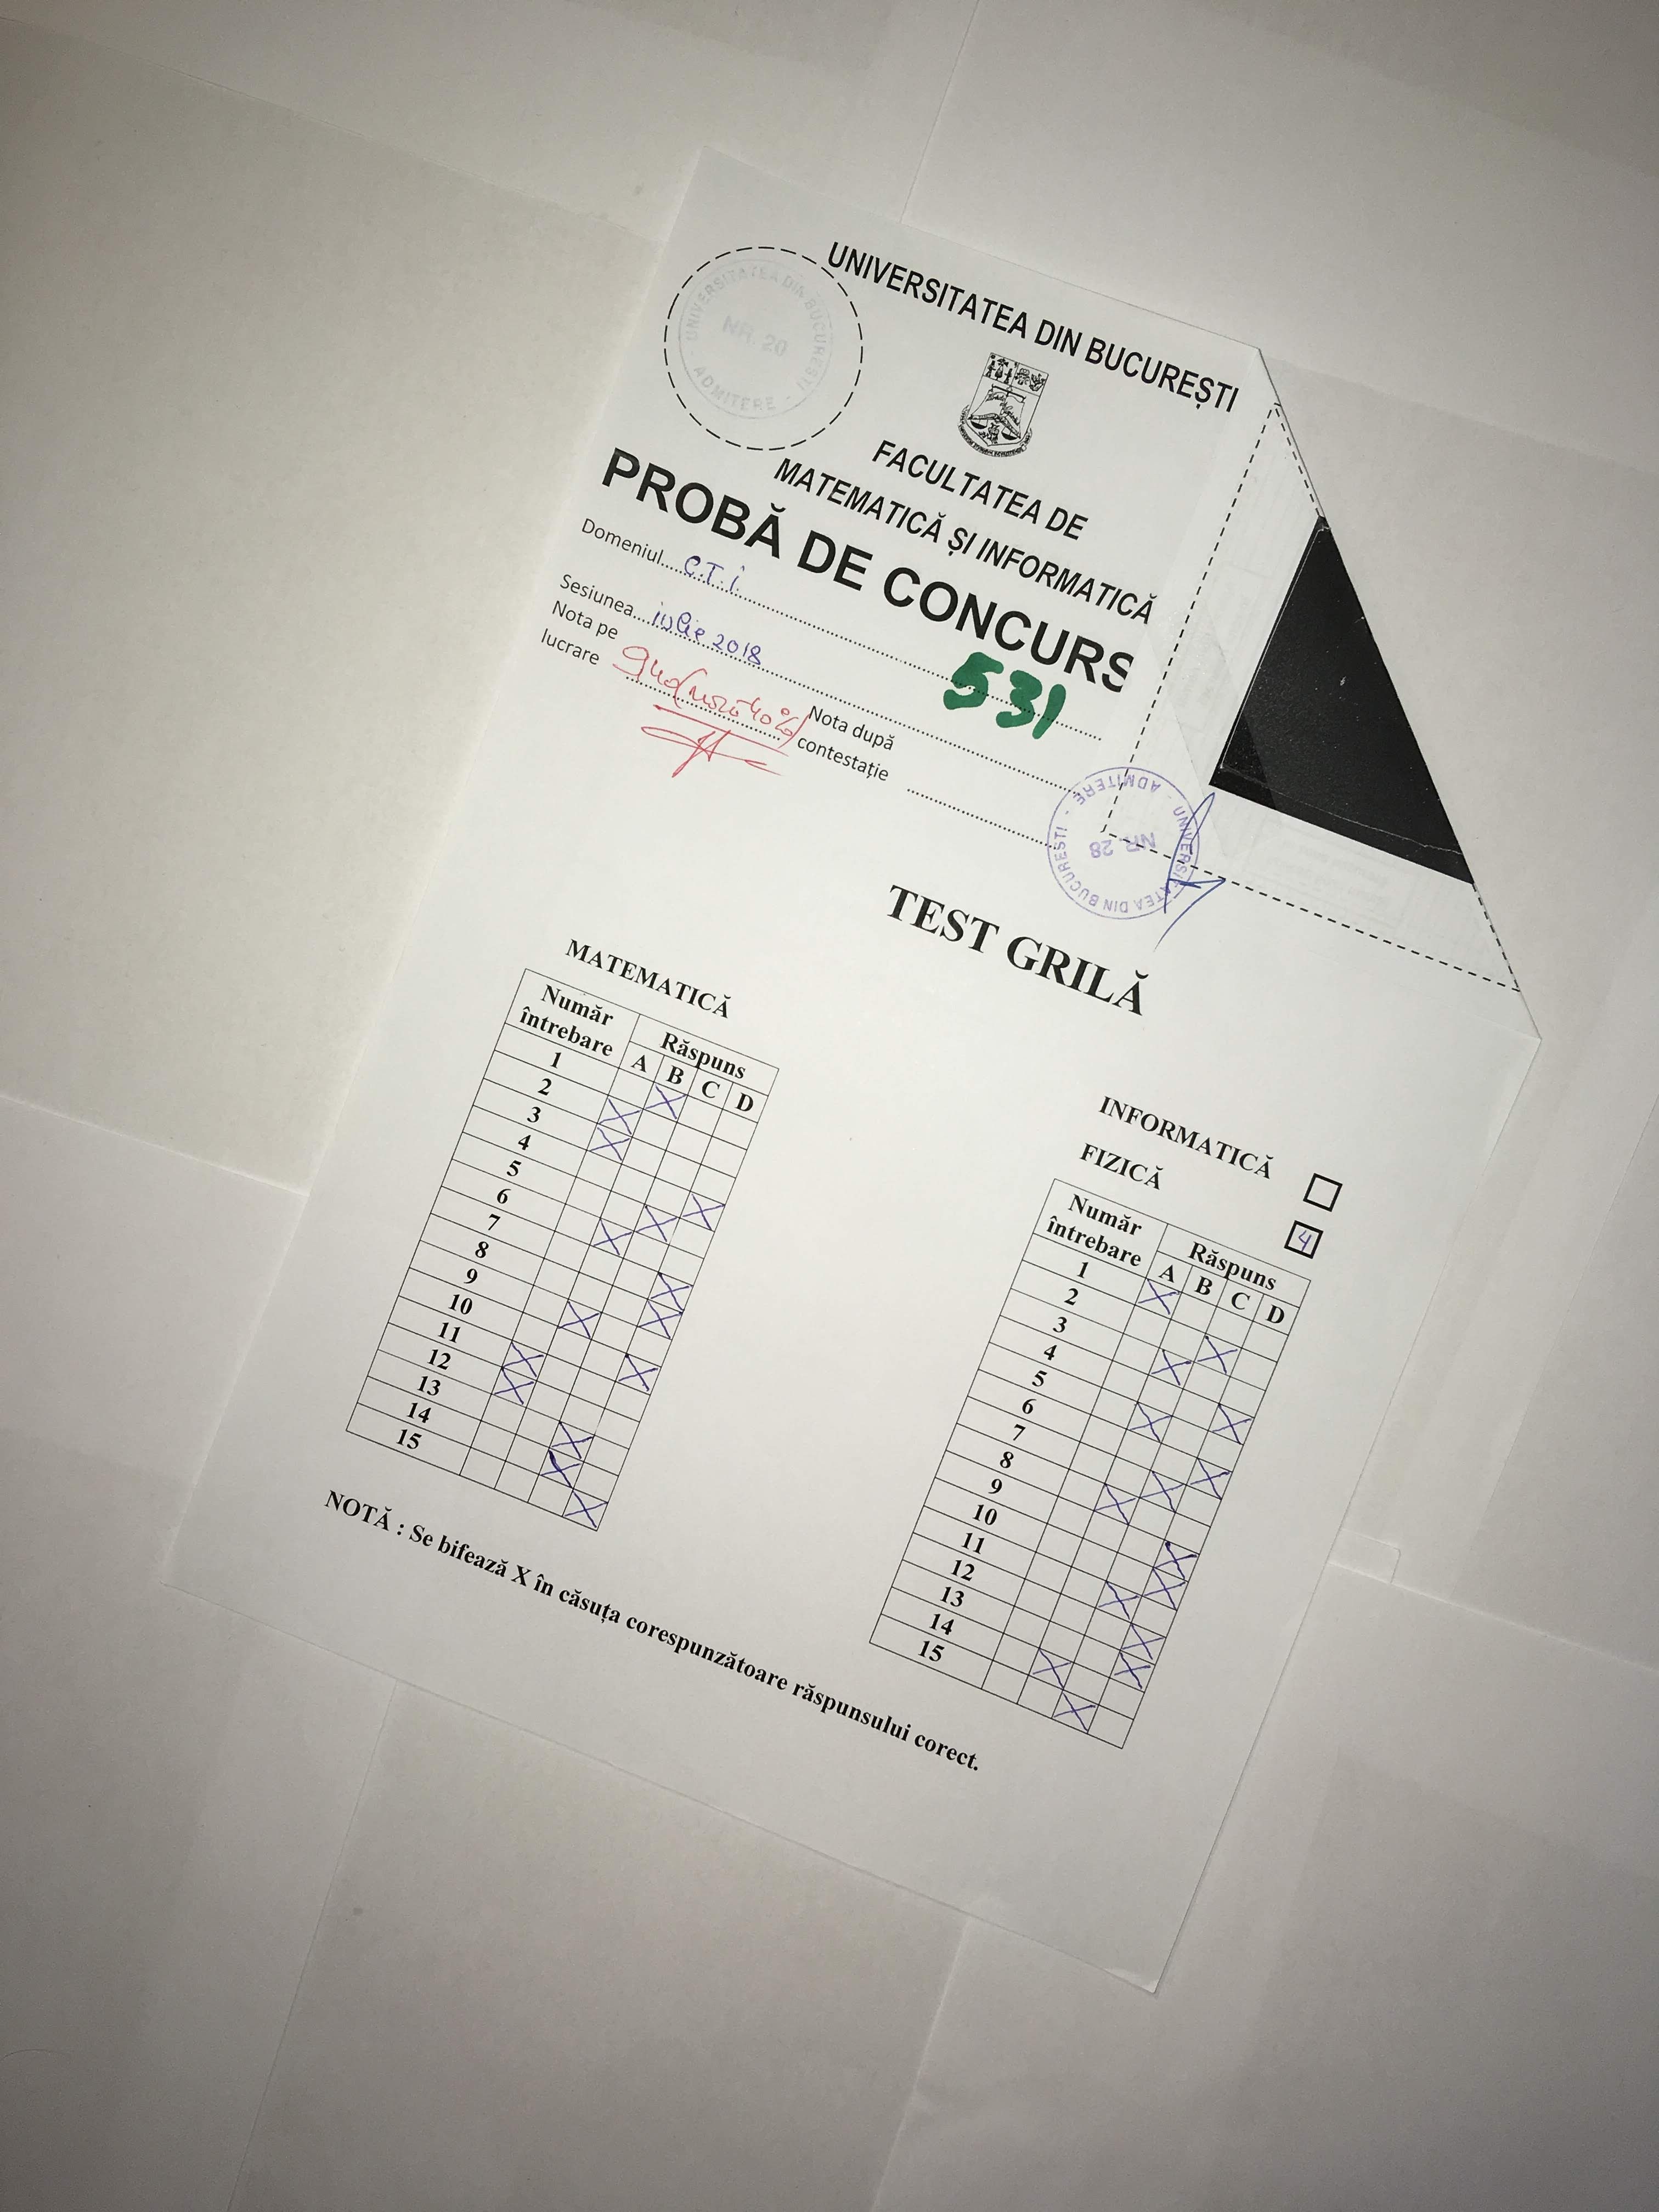 UNIVERSITATEA DIN BUCUREȘTI
UNIVERSITATEA DIN BUCUREȘTI - ADMITERE -
NR. 20
FACULTATEA DE
MATEMATICĂ ȘI INFORMATICĂ
PROBĂ DE CONCURS
Domeniul C.T.I.
531
Sesiunea iulie 2018
Nota pe
lucrare 9,40 (nouă 40%)
Nota după
contestație
UNIVERSITATEA DIN BUCURESTI - ADMITERE -
NR. 28
TEST GRILĂ
MATEMATICĂ
Număr
întrebare
Răspuns
A B C D
1 X
2 X
3 X
4 X
5 X
6 X
7 X
8 X
9 X
10 X
11 X
12 X
13 X
14 X
15 X
INFORMATICĂ
FIZICĂ 4
Număr
întrebare
Răspuns
A B C D
1 X
2 X
3 X
4 X
5 X
6 X
7 X
8 X
9 X
10 X
11 X
12 X
13 X
14 X
15 X
NOTĂ : Se bifează X în căsuța corespunzătoare răspunsului corect.